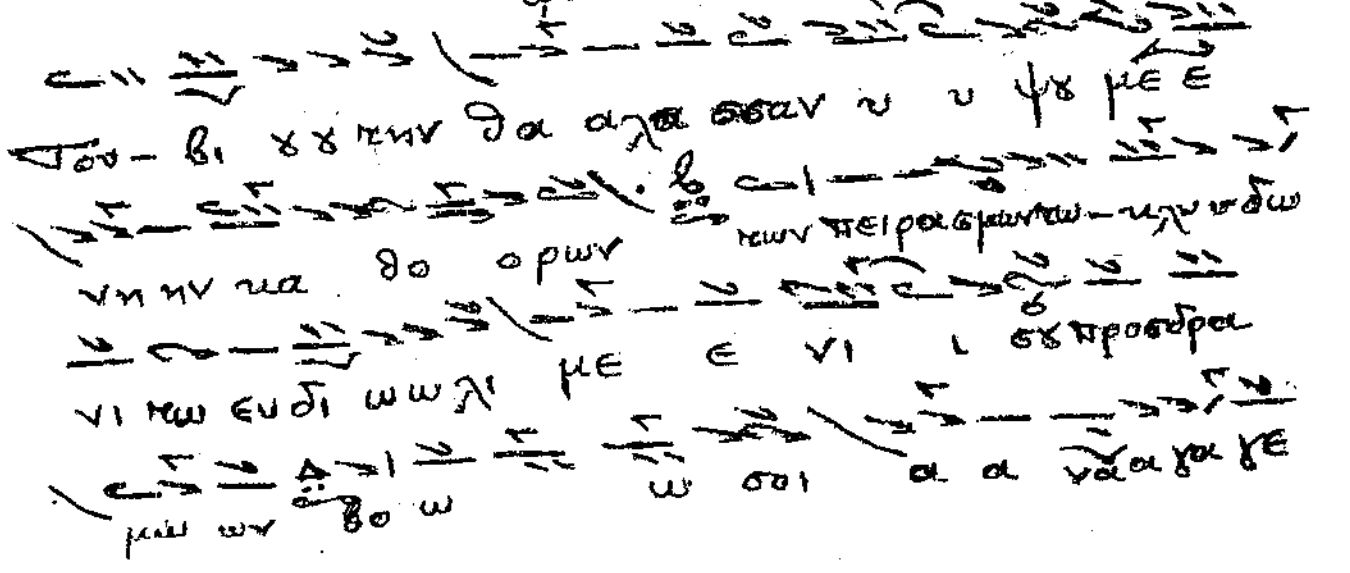 Τȣ - βι ȣ ȣ την θα αλα σσαν υ υ ψȣ με ε
νη ην κα θο ορων των πειρασμων τω - κλυ υ δω
νι τω ευ δι ω ω λι με ε νι ι σȣ προσδρα
μω ων βο ω ω σοι α α να α γα γε